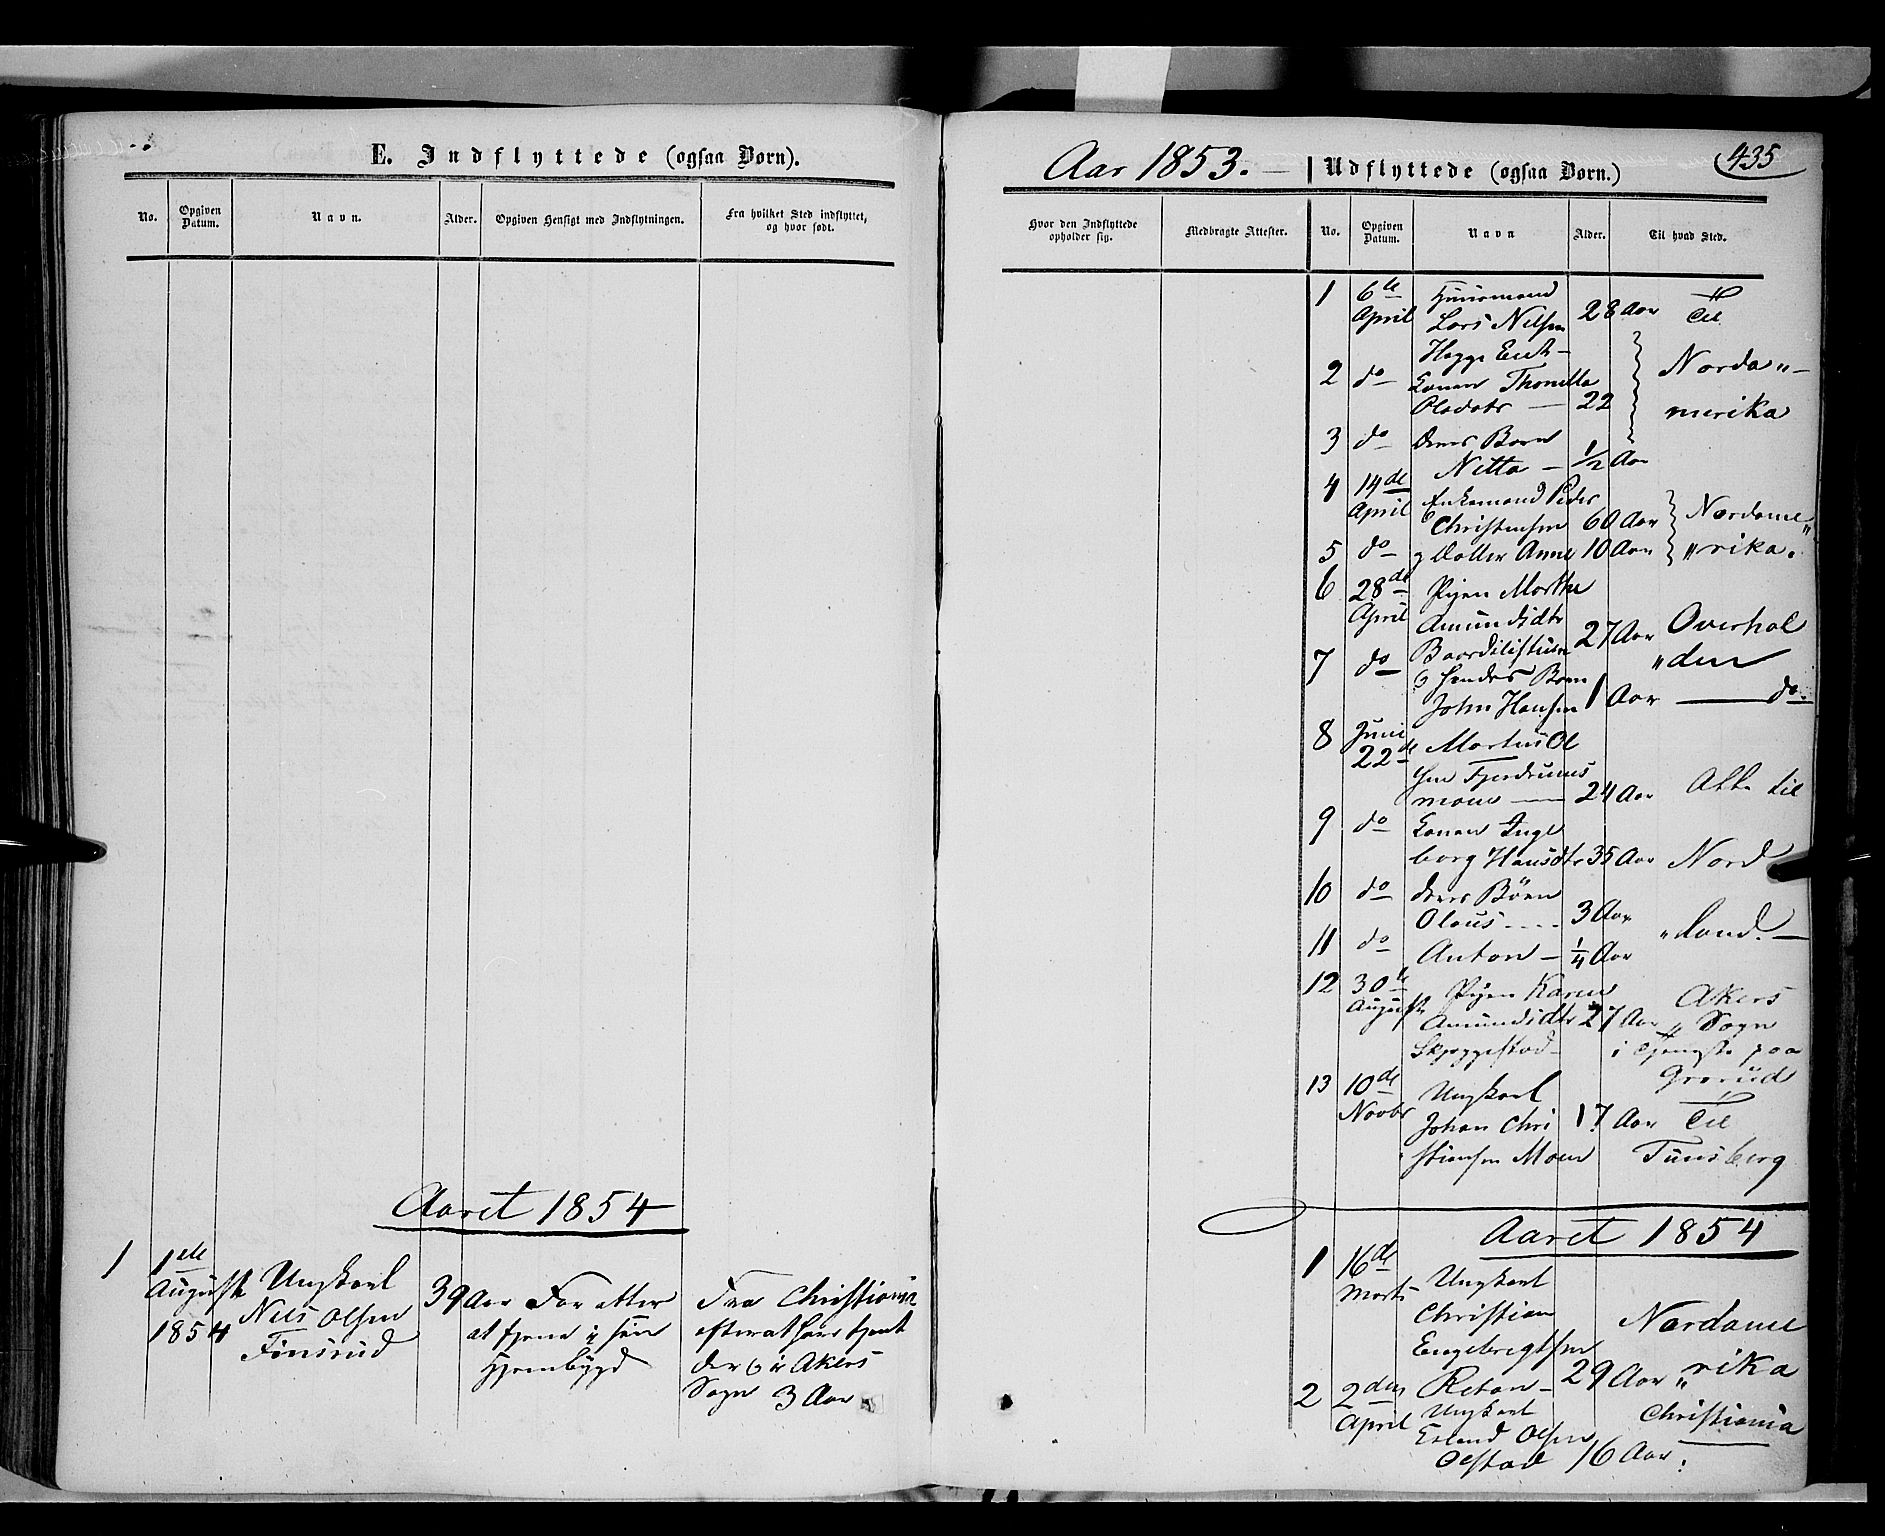 E. Indflyttede (ogsaa Børn).
No.
Opgiven Datum.
Navn.
Alder.
Opgiven Hensigt med Indflytningen.
Fra hvilket Sted indflyttet, og hvor født.
Aaret 1854
1
1ste August 1854
Ungkarl
Niels Olsen
Finsrud
39 Aar
For atter
at tjene i sin
Hjembygd
Fra Christiania
efterat have tjent
der og i Akers
Sogn 3 Aar
Aar 1853. —
Udflyttede (ogsaa Børn.)
435
Hvor den Indflyttede opholder sig.
Medbragte Attester.
No.
Opgiven Datum.
Navn
Alder.
Til hvad Sted.
1 6te April Huusmand
Lars Nilsen 28 Aar Til
Hegge
2 do Konen Thonette Norda„-
Olsdatr — 22 merika
3 do deres Barn
Nitta — 1/2 Aar
4 14de April Enkemand Peder
Christensen 60 Aar Nordame„
5 do og Datter Anne 10 Aar „rika.
6 28de April Pigen Marthe
Amundsdtr 27 Aar Overhal
„den
7 do og hendes Barn
John Hansen 1 Aar — do
8 Juni 22de Martin Ol
sen Fjerdrums
moen — 24 Aar Alle til
9 do Konen Inge
borg Hansdtr 35 Aar Nord
10 do deres Børn
Olaus .... 3 Aar „land. —
11 do Anton — 1/4 Aar
12 30te August Pigen Karen Akers
Amundsdtr 27 Aar „ Sogn
Skjeggestad i Tjeneste paa
Grorud
13 10de Novbr Ungkarl
Johan Chri 17 Aar Til
stiansen Moen Tunsberg
Aaret 1854
1 16de Marts Ungkarl
Christian Nordame
Engebregtsen
29 Aar „rika
2 2den April Ungkarl Christiania
Erland Olsen
Olstad 16 Aar.